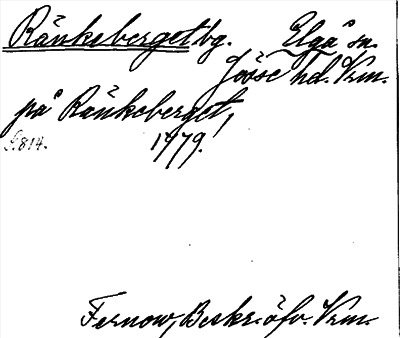 Ränkeberget bg. Elgå sn.
Jösse hd. Vrm.
på Ränkeberget,
S. 814. 1779.
Fernow, Beskr. öfv. Vrm.